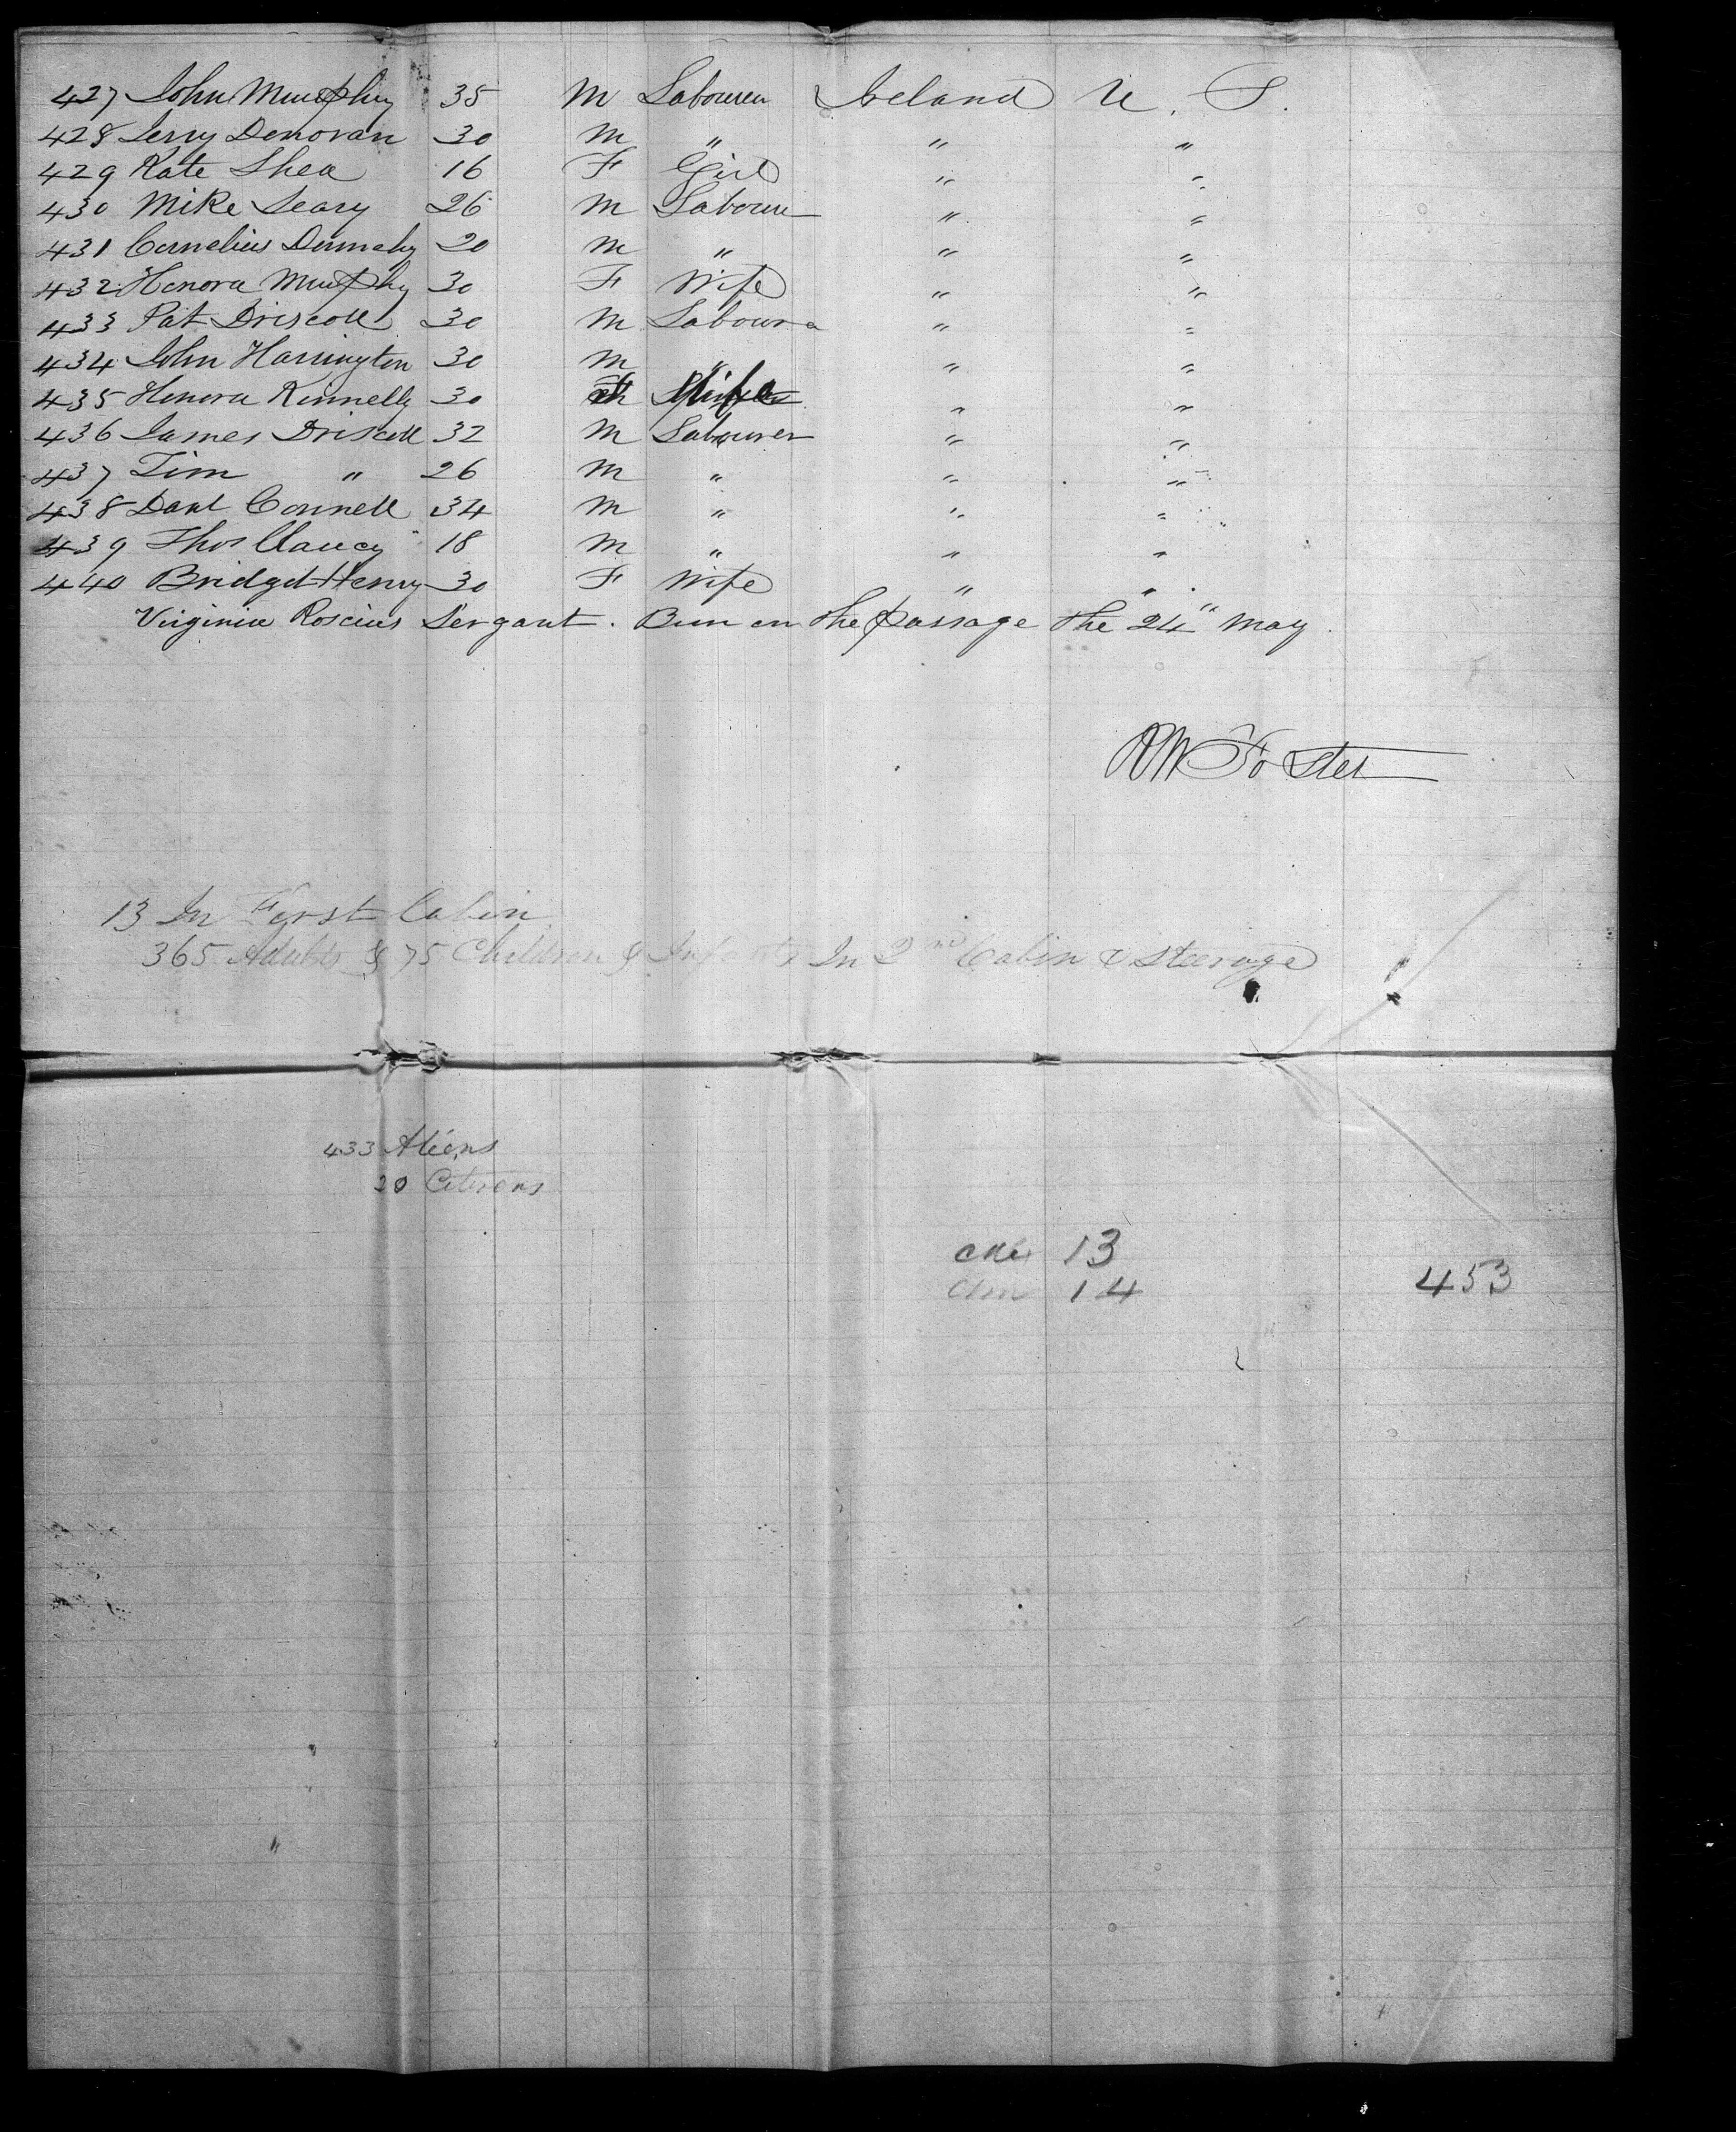 427 John Murphy 35 M Labourer Ireland U. S.
428 Jerry Donovan 30 M " " "
429 Kate Shea 16 F Girl " "
430 Mike Leary 26 M Labourer " "
431 Cornelius 20 M " " "
432 Honora Murphy 30 F Wife " "
433 Pat Driscoll 30 M Labourer " "
434 John Harrington 30 M " " "
435 Honora Kinnelly 30 F Wife " "
436 James Driscoll 32 M Labourer " "
437 Tim " 26 M " " "
438 Danl Connell 34 M " " "
439 Thos Clancy 18 M " " "
440 Bridget Henry 30 F Wife " "
Virginia Roscius Sergant. Born on the passage the 24" May.
RW Foster
13 In First Cabin
365 Adults & 75 Children & Infants In 2nd Cabin & Steerage
433 Aliens
20 Citizens
13
14
453